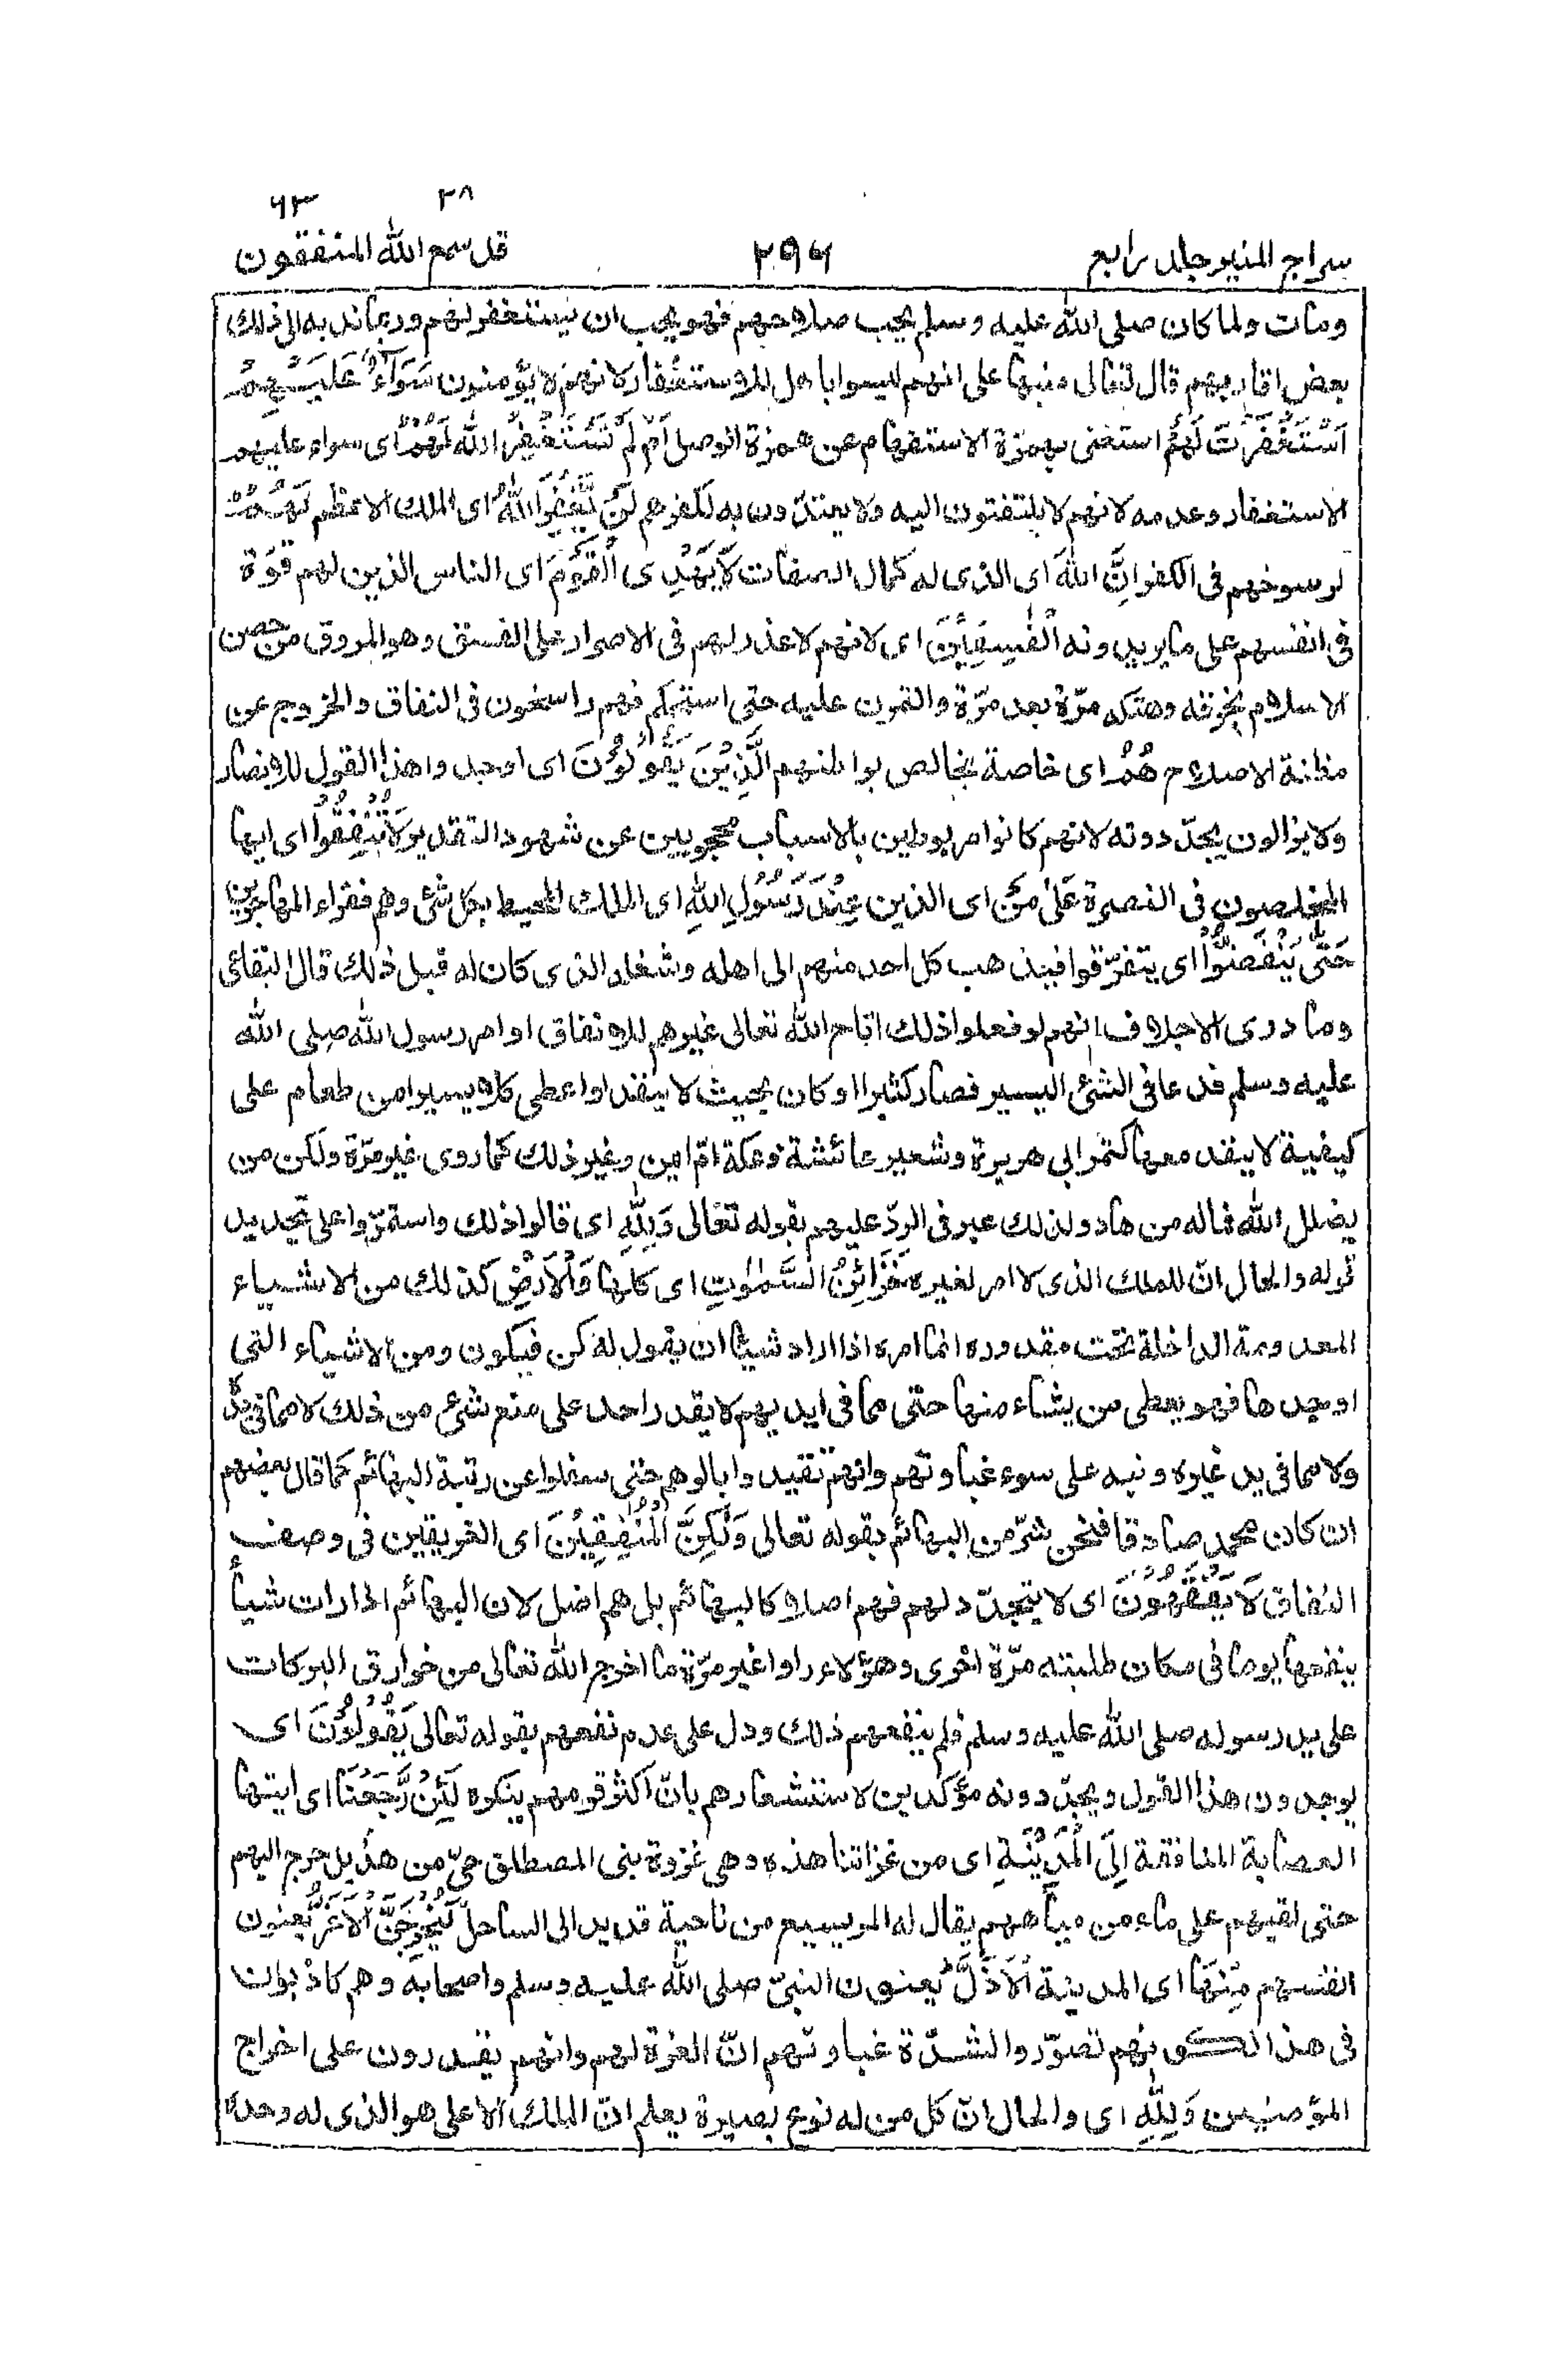 ٢٨ ٦٣
سراج المنير جلد رابع ٢٩٦ قد سمع الله المنفقون
ومات ولما كان صلى الله عليه وسلم يحب صلاحهم فهو يحب ان يستغفر لهم وربما ندبه الى ذلك
بعض اقاربهم قال تعالى منبها على انهم ليسوا باهل للاستغفار لانهم لا يؤمنون سَوَآءٌ عَلَيْهِمْ
اَسْتَغْفَرْتَ لَهُمْ استغنى بهمزة الاستفهام عن همزة الوصل اَمْ لَمْ تَسْتَغْفِرْ الله لَهُمْ اى سواء عليهم
الاستغفار وعدمه لانهم لا يلتفتون اليه ولا يعتدّون به لكفرهم لَنْ يَّغْفِرَ اللّٰهُ اى الملك الاعظم لَهُمْ
لرسوخهم فى الكفر اِنَّ اللّٰهَ اى الذى له كمال الصفات لَا يَهْدِى الْقَوْمَ اى الناس الذين لهم قوّة
فى انفسهم على ما يريدونه الْفٰسِقِيْنَ اى لانهم لا عذر لهم فى الاصرار على الفسق وهو المروق من حصن
الاسلام بخرقه وهتكه مرّة بعد مرّة والتمرن عليه حتى استحكم فهم راسخون فى النفاق والخروج عن
مظنة الاصلاح هُمُ اى خاصة بخالص بواطنهم الَّذِيْنَ يَقُوْلُوْنَ اى اوجدوا هذا القول للانصار
ولا يزالون يجدّدونه لانهم كانوا مربوطين بالاسباب محجوبين عن شهود التقدير لَا تُنْفِقُوْا اى ايها
المخلصون فى النصرة عَلٰى مَنْ اى الذين عِنْدَ رَسُوْلِ اللّٰهِ اى الملك المحيط بكل شئ وهم فقراء المهاجرين
حَتّٰى يَنْفَضُّوْا اى يتفرّقوا فيذهب كل احد منهم الى اهله وشغله الذى كان له قبل ذلك قال البقاعى
وما درى الاجلاف انهم لو فعلوا ذلك اتاح الله تعالى غيرهم للانفاق او امر رسول الله صلى الله
عليه وسلم فدعا فى الشئ اليسير فصار كثيرا او كان بحيث لا ينفد او اعطى كلا يسيرا من طعام على
كيفية لا ينفد معها كتمر ابى هريرة وشعير عائشة وعكة امّ ايمن وغير ذلك كما روى غير مرّة ولكن من
يضلل الله فما له من هاد ولذلك عبر فى الردّ عليهم بقوله تعالى وَلِلّٰهِ اى قالوا ذلك واستمرّوا على تجديد
قوله والحال انّ للملك الذى لا امر لغيره خَزَآئِنُ السَّمٰوٰتِ اى كلها وَالْاَرْضِ كذلك من الاشياء
المعدومة الداخلة تحت مقدوره انما امره اذا اراد شيئا ان يقول له كن فيكون ومن الاشياء التى
اوجدها فهو يعطى من يشاء منها حتى مما فى ايديهم لا يقدر احد على منع شئ من ذلك لا مما فى يده
ولا مما فى يد غيره ونبه على سوء غباوتهم وانهم تقيدوا بالوهم حتى سفلوا عن رتبة البهائم كما قال بعضهم
ان كان محمد صادقا فنحن شرّ من البهائم بقوله تعالى وَلٰكِنَّ الْمُنٰفِقِيْنَ اى الغريقين فى وصف
النفاق لَا يَفْقَهُوْنَ اى لا يتجدّد لهم فهم اصلا كالبهائم بل هم اضل لان البهائم اذا رات شيأ
ينفعها يوما فى مكان طلبته مرّة اخرى وهؤلاء راوا غير مرّة ما اخرج الله تعالى من خوارق البركات
على يد رسوله صلى الله عليه وسلم فلم ينفعهم ذلك ودل على عدم نفعهم بقوله تعالى يَقُوْلُوْنَ اى
يوجدون هذا القول ويجدّدونه مؤكدين لاستشعارهم بانّ اكثر قومهم ينكره لَئِنْ رَّجَعْنَا اى ايتها
العصابة المنافقة اِلَى الْمَدِيْنَةِ اى من غزاتنا هذه وهى غزوة بنى المصطلق حىّ من هذيل خرج اليهم
حتى لقيهم على ماء من مياههم يقال له المريسيع من ناحية قديد الى الساحل لَيُخْرِجَنَّ الْاَعَزُّ يعنون
انفسهم مِنْهَا اى المدينة الْاَذَلَّ يعنون النبىّ صلى الله عليه وسلم واصحابه وهم كاذبون
فى هذا لكونهم تصوّروا لشدّة غباوتهم انّ العزة لهم وانهم يقدرون على اخراج
المؤمنين وَلِلّٰهِ اى والحال انّ كل من له نوع بصيرة يعلم انّ الملك الاعلى هو الذى له وحده